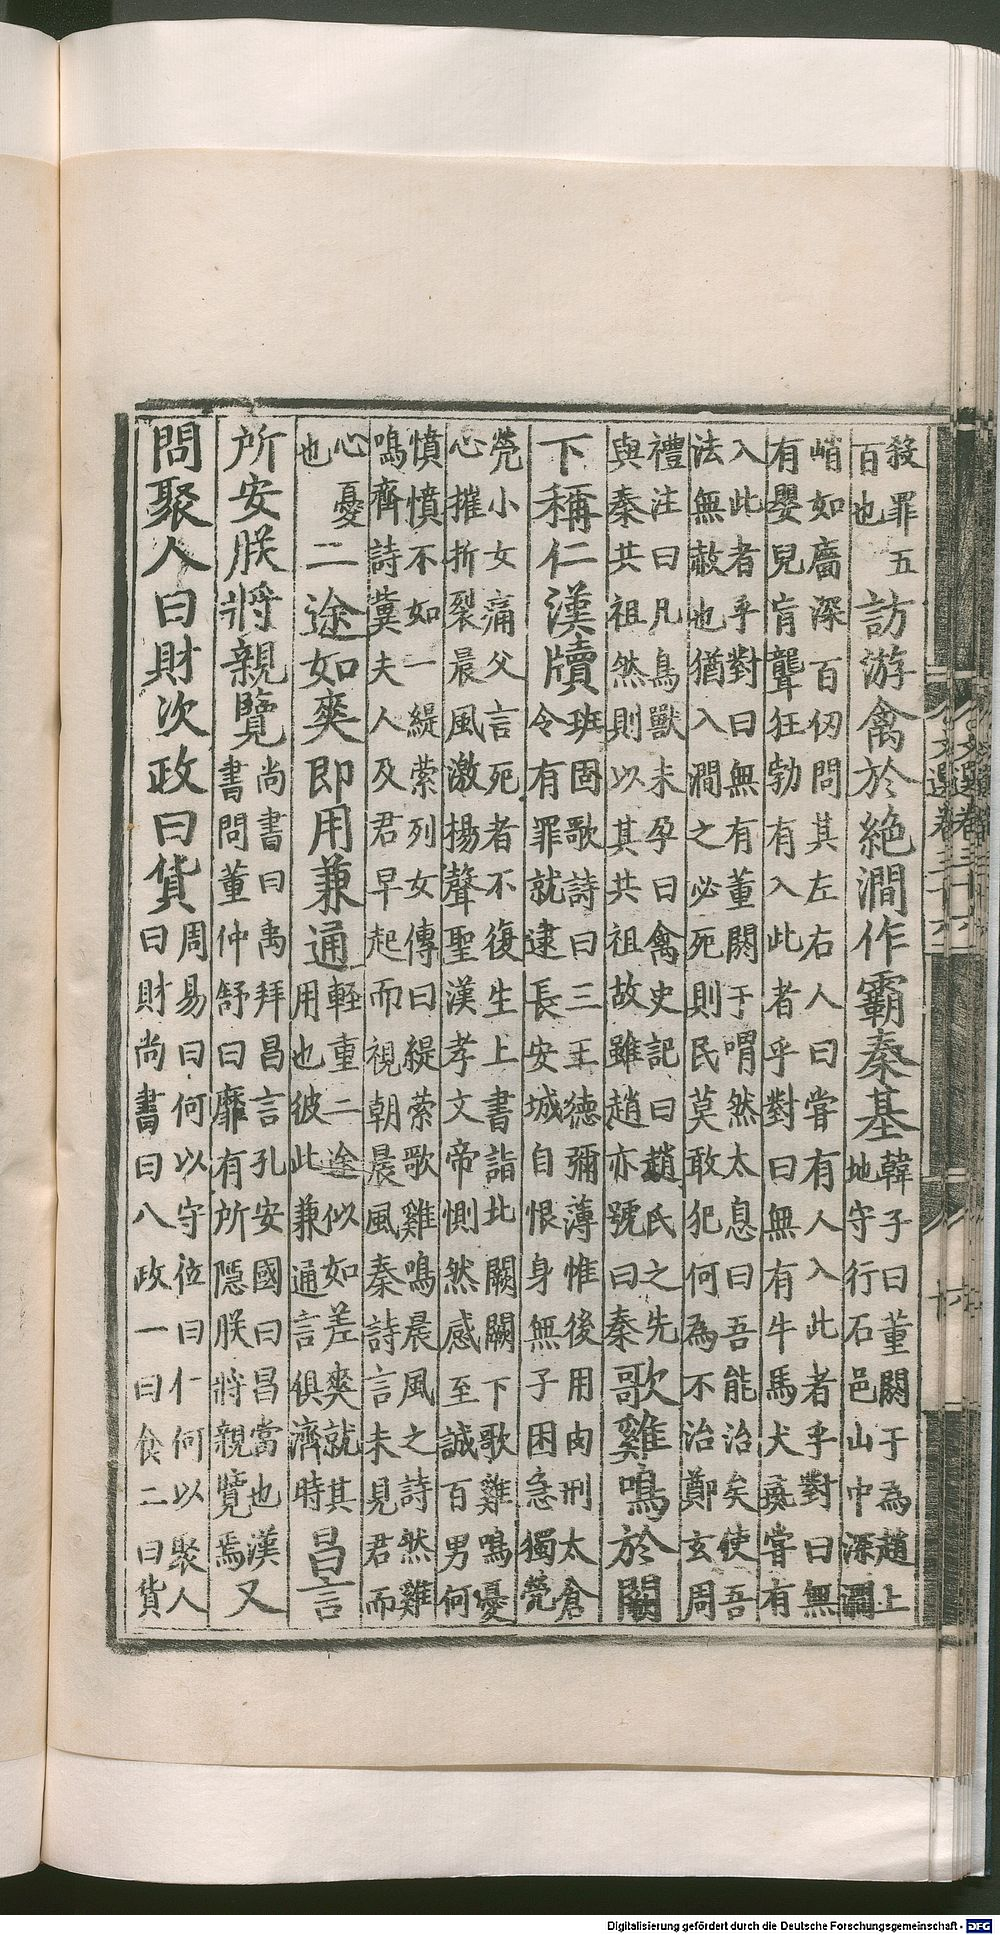 殺罪五
百也
訪游禽於絶澗作霸秦基
韓子曰董閼于為趙上
地守行石邑山中深澗
峭如廧深百仞問其左右人曰甞有人入此者乎對曰無
有嬰兒肓聾狂勃有入此者乎對曰無有牛馬犬彘甞有
入此者乎對曰無有董閼于喟然太息曰吾能治矣使吾
法無赦也猶入澗之必死則民莫敢犯何為不治鄭玄周
禮注曰凡鳥獸未孕曰禽史記曰趙氏之先
與秦共祖然則以其共祖故雖趙亦號曰秦
歌雞鳴於闕
下稱仁漢牘
班固歌詩曰三王德彌薄惟後用肉刑太倉
令有罪就逮長安城自恨身無子困急獨煢
煢小女痛父言死者不復生上書詣北闕闕下歌雞鳴憂
心摧折裂晨風激揚聲聖漢孝文帝惻然感至誠百男何
憤憤不如一緹縈列女傳曰緹縈歌雞鳴晨風之詩然雞
鳴齊詩兾夫人及君早起而視朝晨風秦詩言未見君而
心憂
也
二途如爽即用兼通
輕重二途似如差爽就其
用也彼此兼通言俱濟時
昌言
所安朕將親覽
尚書曰禹拜昌言孔安國曰昌當也漢
書問董仲舒曰靡有所隱朕將親覽焉
又
問聚人曰財次政曰貨
周易曰何以守位曰仁何以聚人
曰財尚書曰八政一曰食二曰貨
文選卷三十六
十六
Digitalisierung gefördert durch die Deutsche Forschungsgemeinschaft - DFG